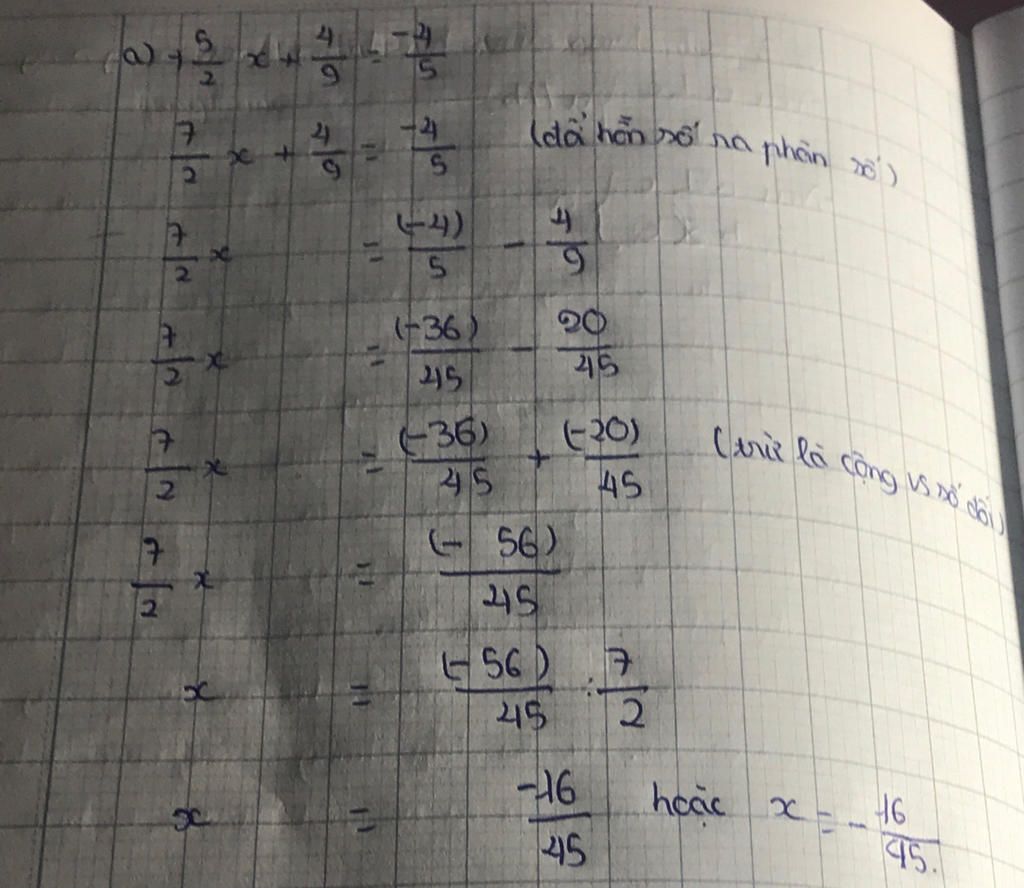 a) 1 5/2 x + 4/9 = -4/5
7/2 x + 4/9 = -4/5 (đổi hỗn số ra phân số)
7/2 x = (-4)/5 - 4/9
7/2 x = (-36)/45 - 20/45
7/2 x = (-36)/45 + (-20)/45 (trừ là cộng vs số đối)
7/2 x = (-56)/45
x = (-56)/45 : 7/2
x = -16/45 hoặc x = -16/45.